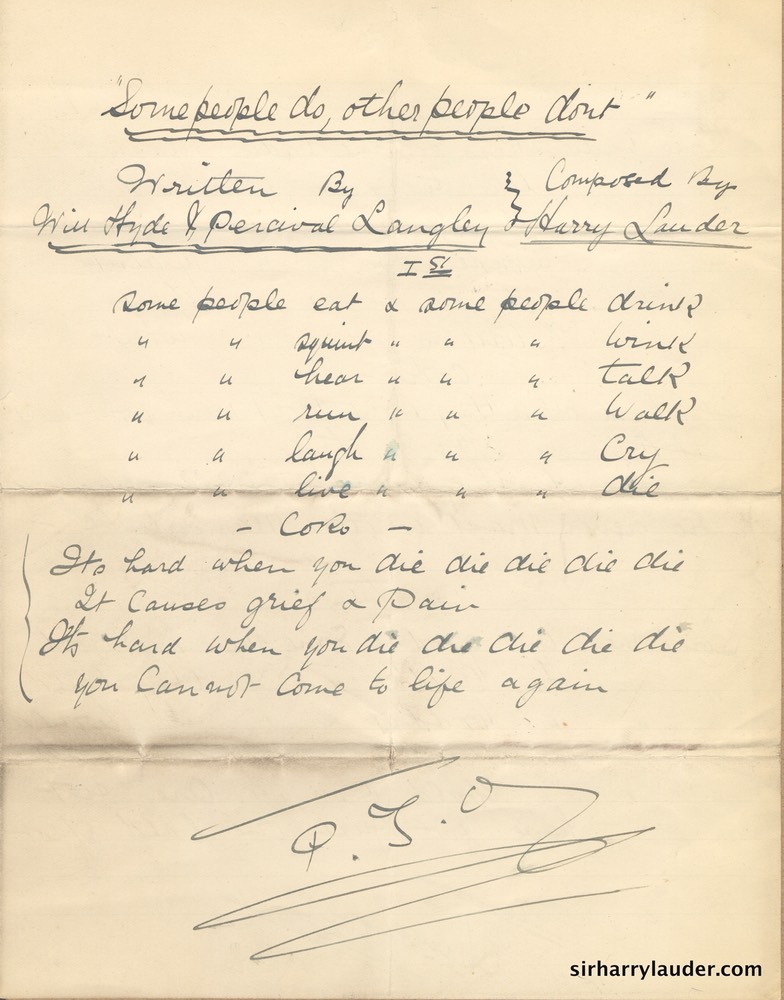 "Some people do, other people dont"
Written By } Composed By
Will Hyde & Percival Langley } Harry Lauder
1st
Some people eat & some people drink
" " squint " " " wink
" " hear " " " talk
" " run " " " walk
" " laugh " " " Cry
" " live " " " die
- Coro -
Its hard when you die die die die die
It Causes grief & Pain
Its hard when you die die die die die
you Cannot Come to life again
P.T.O
sirharrylauder.com